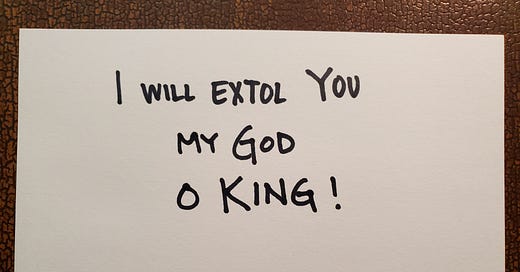 I WILL EXTOL YOU
MY GOD
O KING!